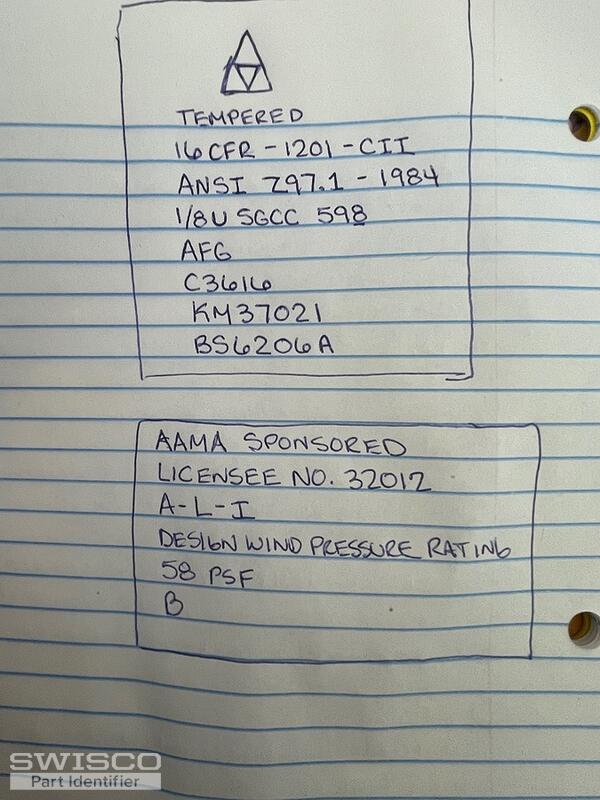 TEMPERED
16 CFR - 1201 - CII
ANSI Z97.1 - 1984
1/8 U SGCC 598
AFG
C3616
KM37021
BS6206A
AAMA SPONSORED
LICENSEE NO. 32012
A-L-I
DESIGN WIND PRESSURE RATING
58 PSF
B
SWISCO
Part Identifier